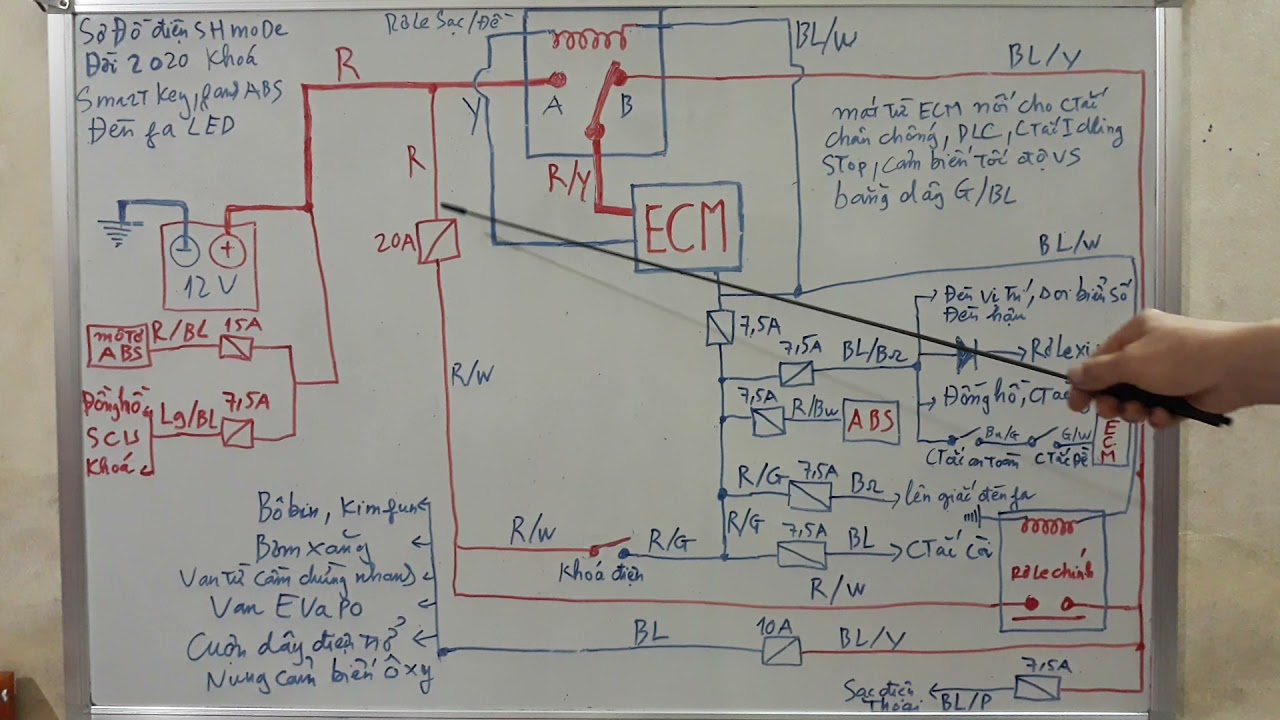 Sơ Đồ điện SHmoDe
Đời 2020 Khoá
Smart Key, phanh ABS
Đèn fa LED
Rơle Sạc/Đề
R
A
B
Y
BL/W
BL/Y
mát từ ECM nối cho CTắc
chân chống, DLC, CTắc Idling
STop, cảm biến tốc độ VS
bằng dây G/BL
R/Y
ECM
R
20A
12V
BL/W
môtơ
ABS
R/BL
15A
Đồng hồ
SCU
Khoá
Lg/BL
7,5A
R/W
7,5A
7,5A
BL/BR
Đèn vị trí, soi biển số
Đèn hậu
Rơle xi
Đồng hồ, CTắc
7,5A
R/Bw
ABS
CTắc an Toàn
G/W
CTắc Đề
ECM
R/G
7,5A
lên giắc đèn fa
R/G
7,5A
BL
CTắc Còi
Rơle chính
R/W
Khoá điện
R/G
R/W
Bôbin, Kim fun
Bơm xăng
Van Từ cầm chừng nhanh
Van EVaPo
Cuộn dây điện nổ
Nung cảm biến ôxy
BL
10A
BL/Y
7,5A
Sạc điện
Thoại
BL/P